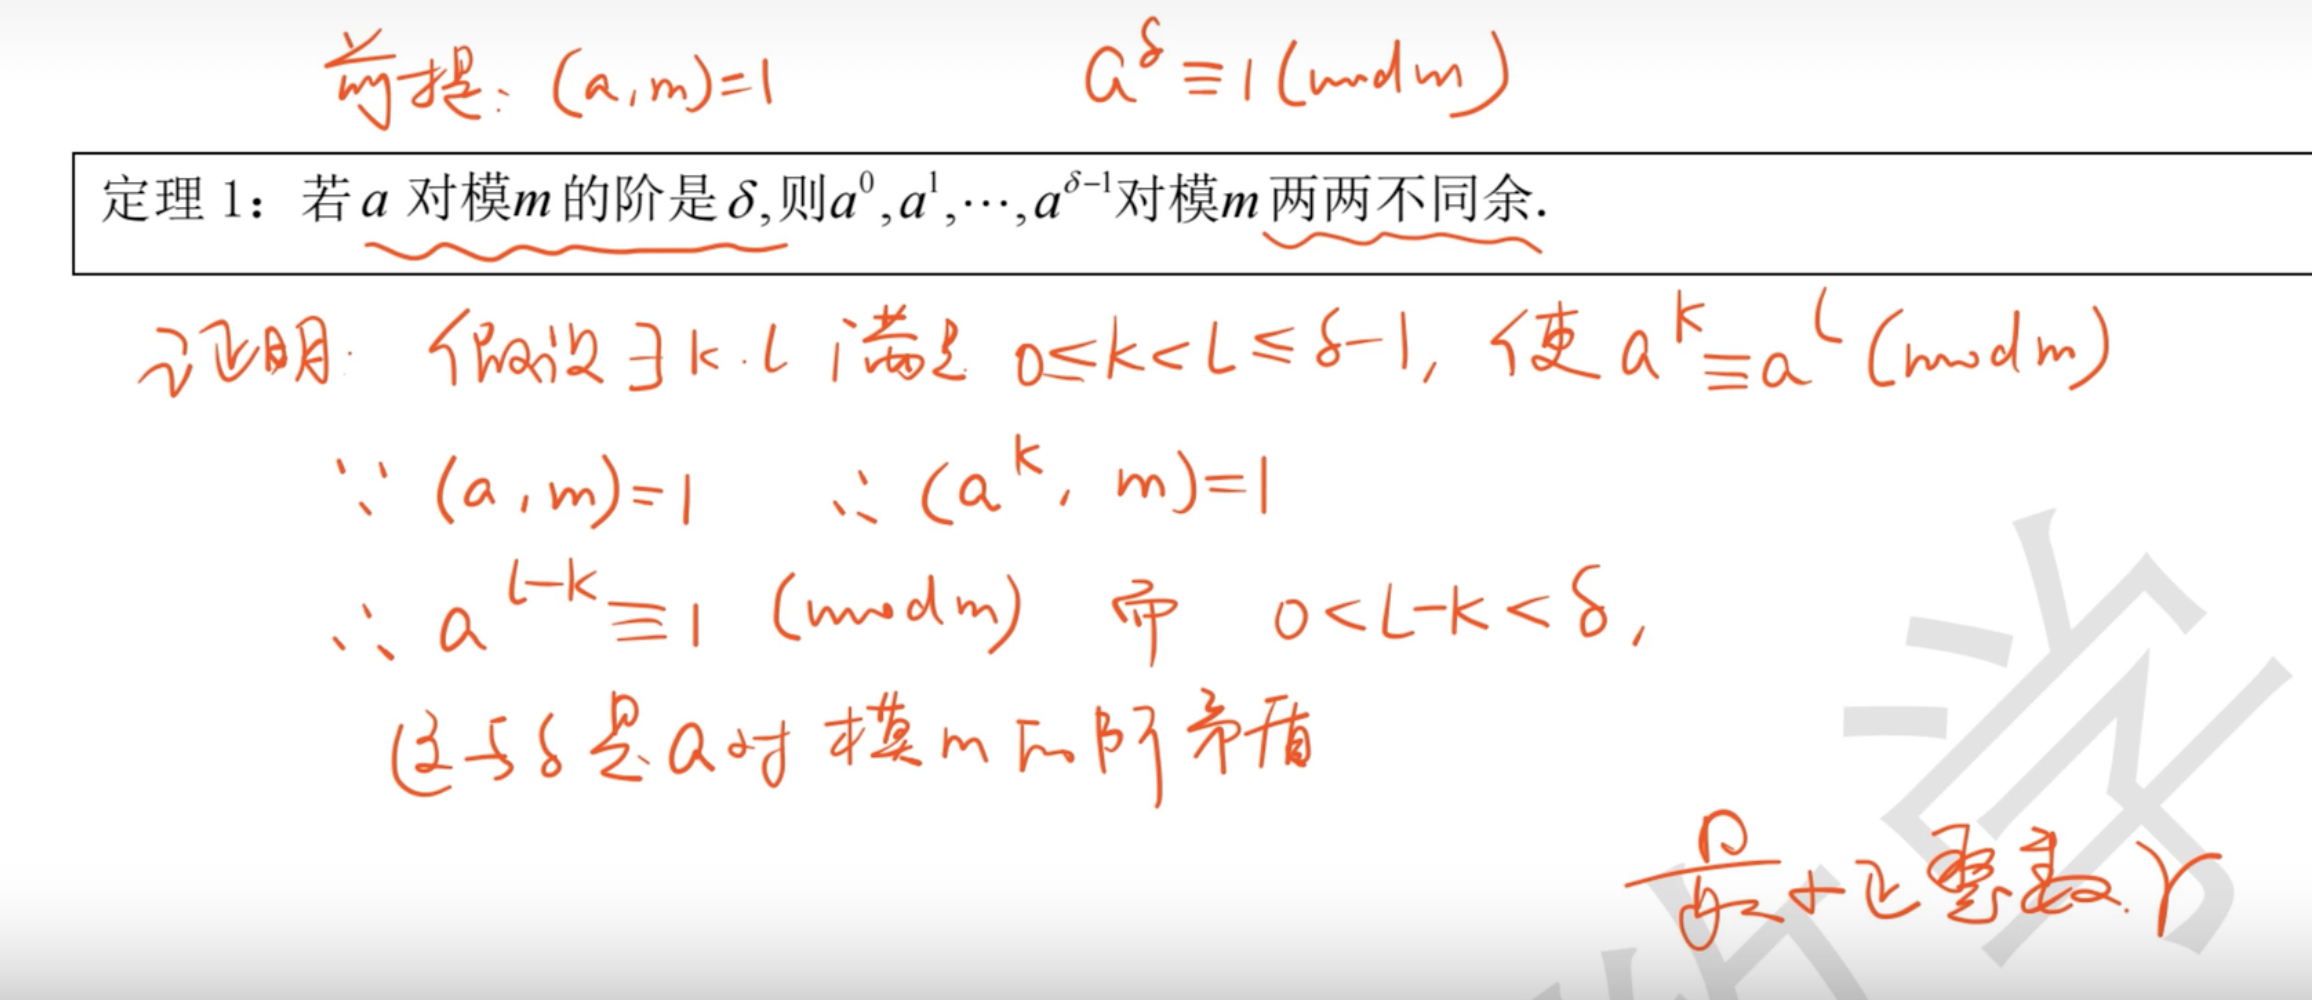 前提：(a,m)=1 a^δ≡1(mod m)
定理 1：若 a 对模 m 的阶是 δ,则 a^0,a^1,⋯,a^{δ-1} 对模 m 两两不同余.
证明：假设∃k.l 满足 0≤k<l≤δ-1, 使 a^k≡a^l(mod m)
∵ (a,m)=1 ∴ (a^k, m)=1
∴ a^{l-k}≡1 (mod m) 而 0<l-k<δ,
这与δ是a对模m的阶矛盾
最小正整数.r
学